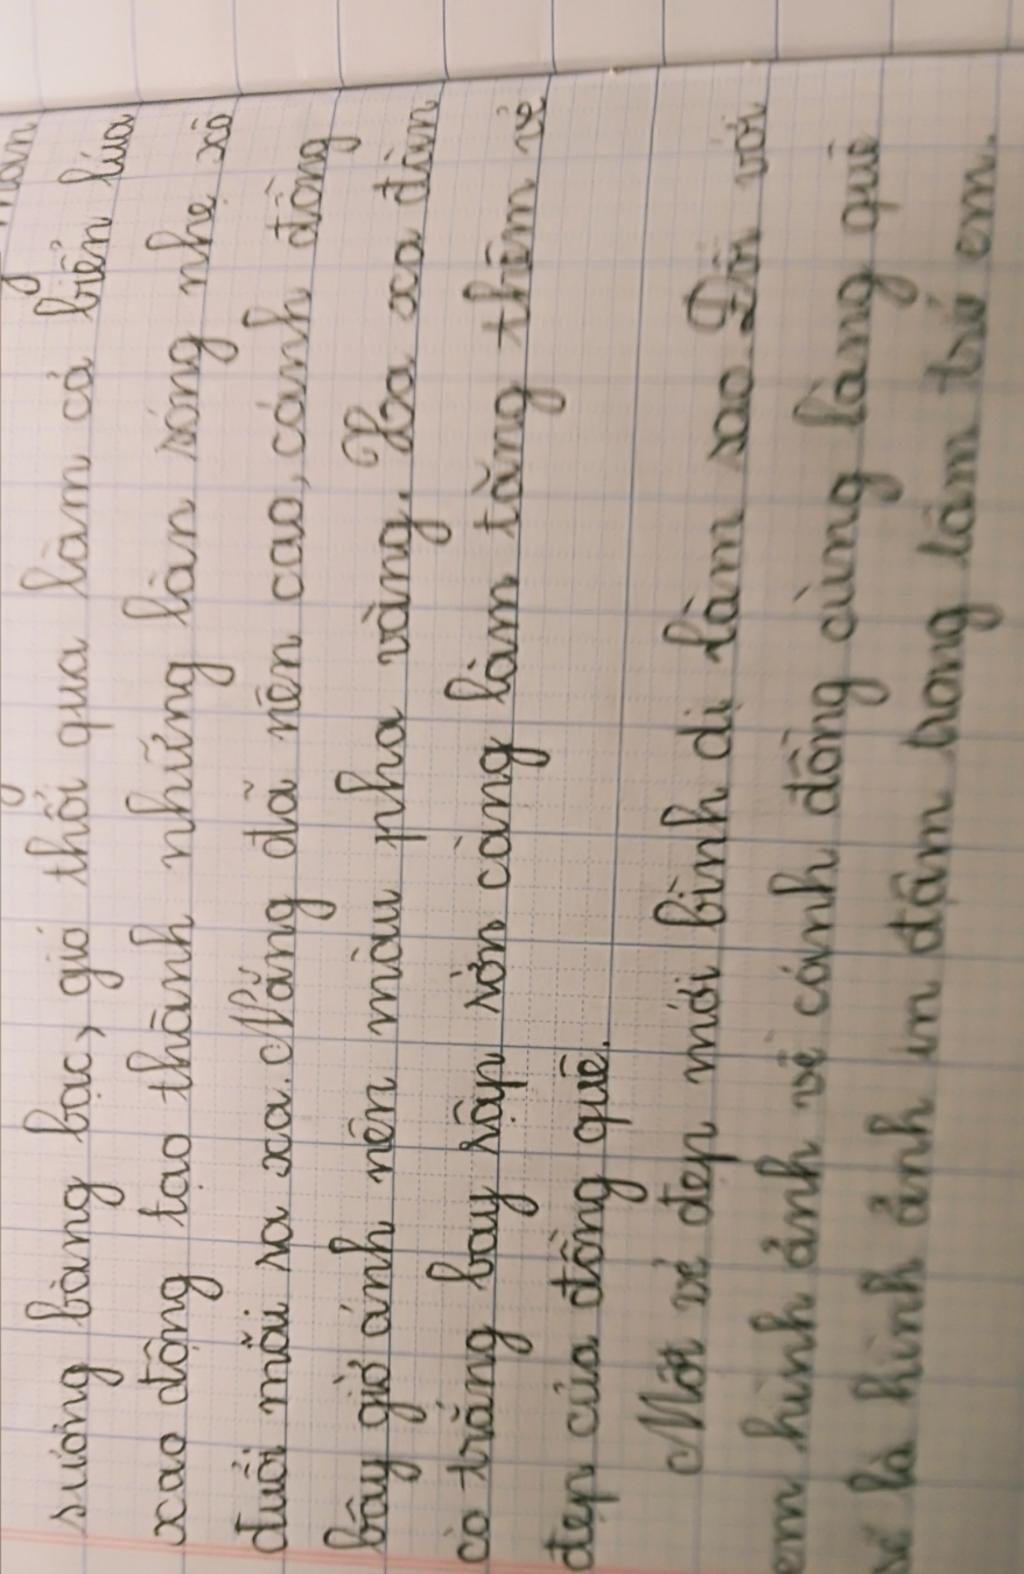 sương bàng bạc, gió thổi qua làm cả biển lúa
xao động tạo thành những làn sóng nhẹ xô
đuổi mãi ra xa. Nắng đã nên cao, cánh đồng
bây giờ ánh nên màu pha vàng. Xa xa đàn
cò trắng bay rập rờn càng làm tăng thêm vẻ
đẹp của đồng quê.
Một vẻ đẹp mới bình dị làm sao. Đối với
em hình ảnh về cánh đồng cùng làng quê
sẽ là hình ảnh in đậm trong tâm trí em.